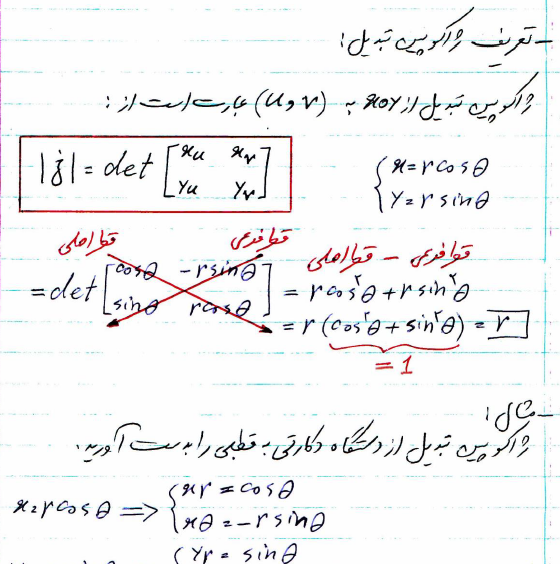 - تعریف ژاکوبین تبدیل:
ژاکوبین تبدیل از xoy به (u و v) عبارت است از:
|j| = det [xu xv
yu yv]
{x = r cosθ
y = r sinθ
قطر اصلی قطر فرعی
قطر فرعی - قطر اصلی
= det [cosθ -r sinθ
sinθ r cosθ] = r cos²θ + r sin²θ
= r (cos²θ + sin²θ) = r
= 1
- مثال:
ژاکوبین تبدیل از دستگاه دکارتی به قطبی را بدست آورید.
x = r cosθ ⟹ {xr = cosθ
xθ = -r sinθ
{yr = sinθ